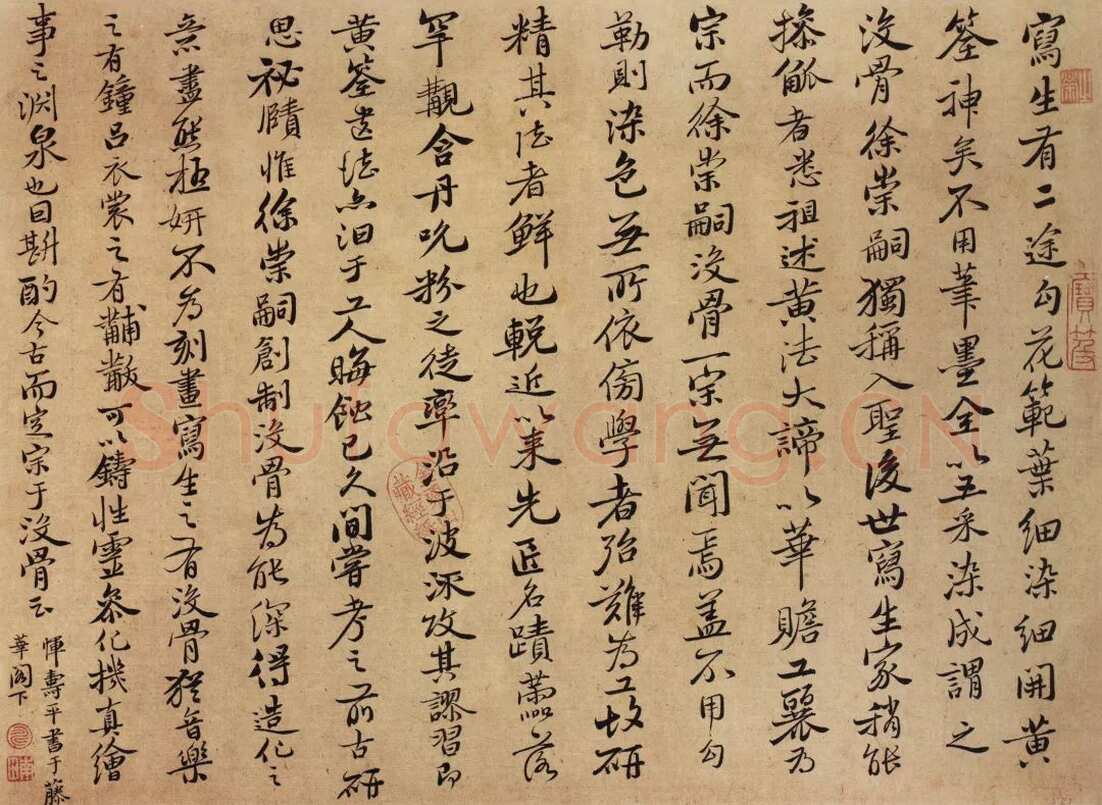 寫生有二途勾花範葉細染細開黃
筌神矣不用筆墨全以五采染成謂之
沒骨徐崇嗣獨稱入聖後世寫生家稍能
操觚者悉祖述黃法大諦以華贍工麗為
宗而徐崇嗣沒骨一宗無聞焉蓋不用勾
勒則染色無所依傍學者殆難為工故研
精其法者鮮也輓近以來先匠名蹟蕩落
罕覯含丹吮粉之徒率沿于波流攻其謬習即
黃筌遺法亦汩于工人晦蝕已久間嘗考之前古研
思祕賾惟徐崇嗣創制沒骨為能深得造化之
意盡態極妍不為刻畫寫生之有沒骨猶音樂
之有鐘呂衣裳之有黼黻可以鑄性靈參化機真繪
事之淵泉也因斟酌今古而定宗于沒骨云
惲壽平書于藤
華閣下
Shufawang.CN